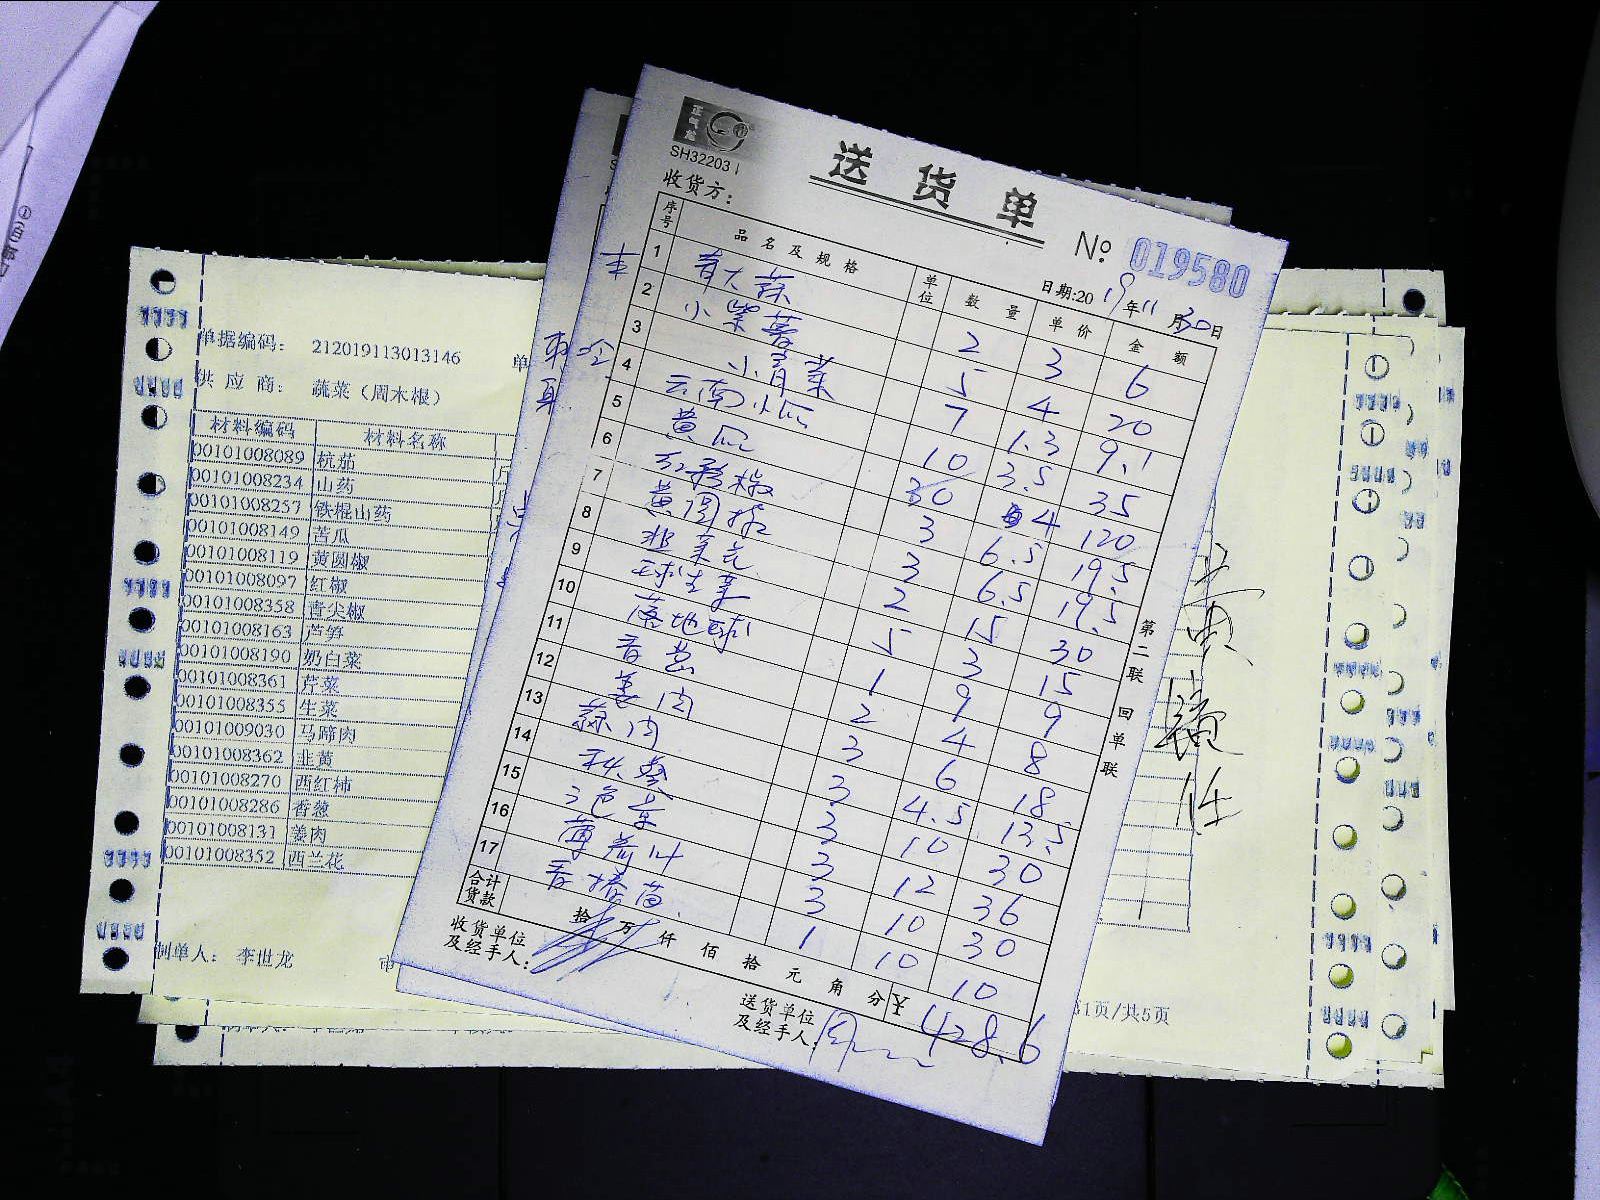 正气龙
SH322031
送货单
收货方:
№ 019580
日期:2019年11月30日
序号 品名及规格 单位 数量 单价 金额
1 青大蒜 2 3 6
2 小紫薯 5 4 20
3 小青菜 7 1.3 9.1
4 云南小瓜 10 3.5 35
5 黄瓜 30 4 120
6 红彩椒 3 6.5 19.5
7 黄圆椒 3 6.5 19.5
8 韭菜花 2 15 30
9 球生菜 5 3 15
10 落地球 1 9 9
11 香葱 2 4 8
12 姜肉 3 6 18
13 蒜肉 3 4.5 13.5
14 秋葵 3 10 30
15 三色堇 3 12 36
16 薄荷叶 3 10 30
17 香椿苗 1 10 10
合计货款 拾 万 仟 佰 拾 元 角 分 ¥ 428.6
收货单位及经手人:
送货单位及经手人:
第二联 回单联
单据编码: 212019113013146 单
供应商: 蔬菜(周木根)
材料编码 材料名称
00101008089 杭茄
00101008234 山药
00101008257 铁棍山药
00101008149 苦瓜
00101008119 黄圆椒
00101008097 红椒
00101008358 青尖椒
00101008163 芦笋
00101008190 奶白菜
00101008361 芹菜
00101008355 生菜
00101009030 马蹄肉
00101008362 韭黄
00101008270 西红柿
00101008286 香葱
00101008131 姜肉
00101008352 西兰花
制单人: 李世龙 审
第1页/共5页